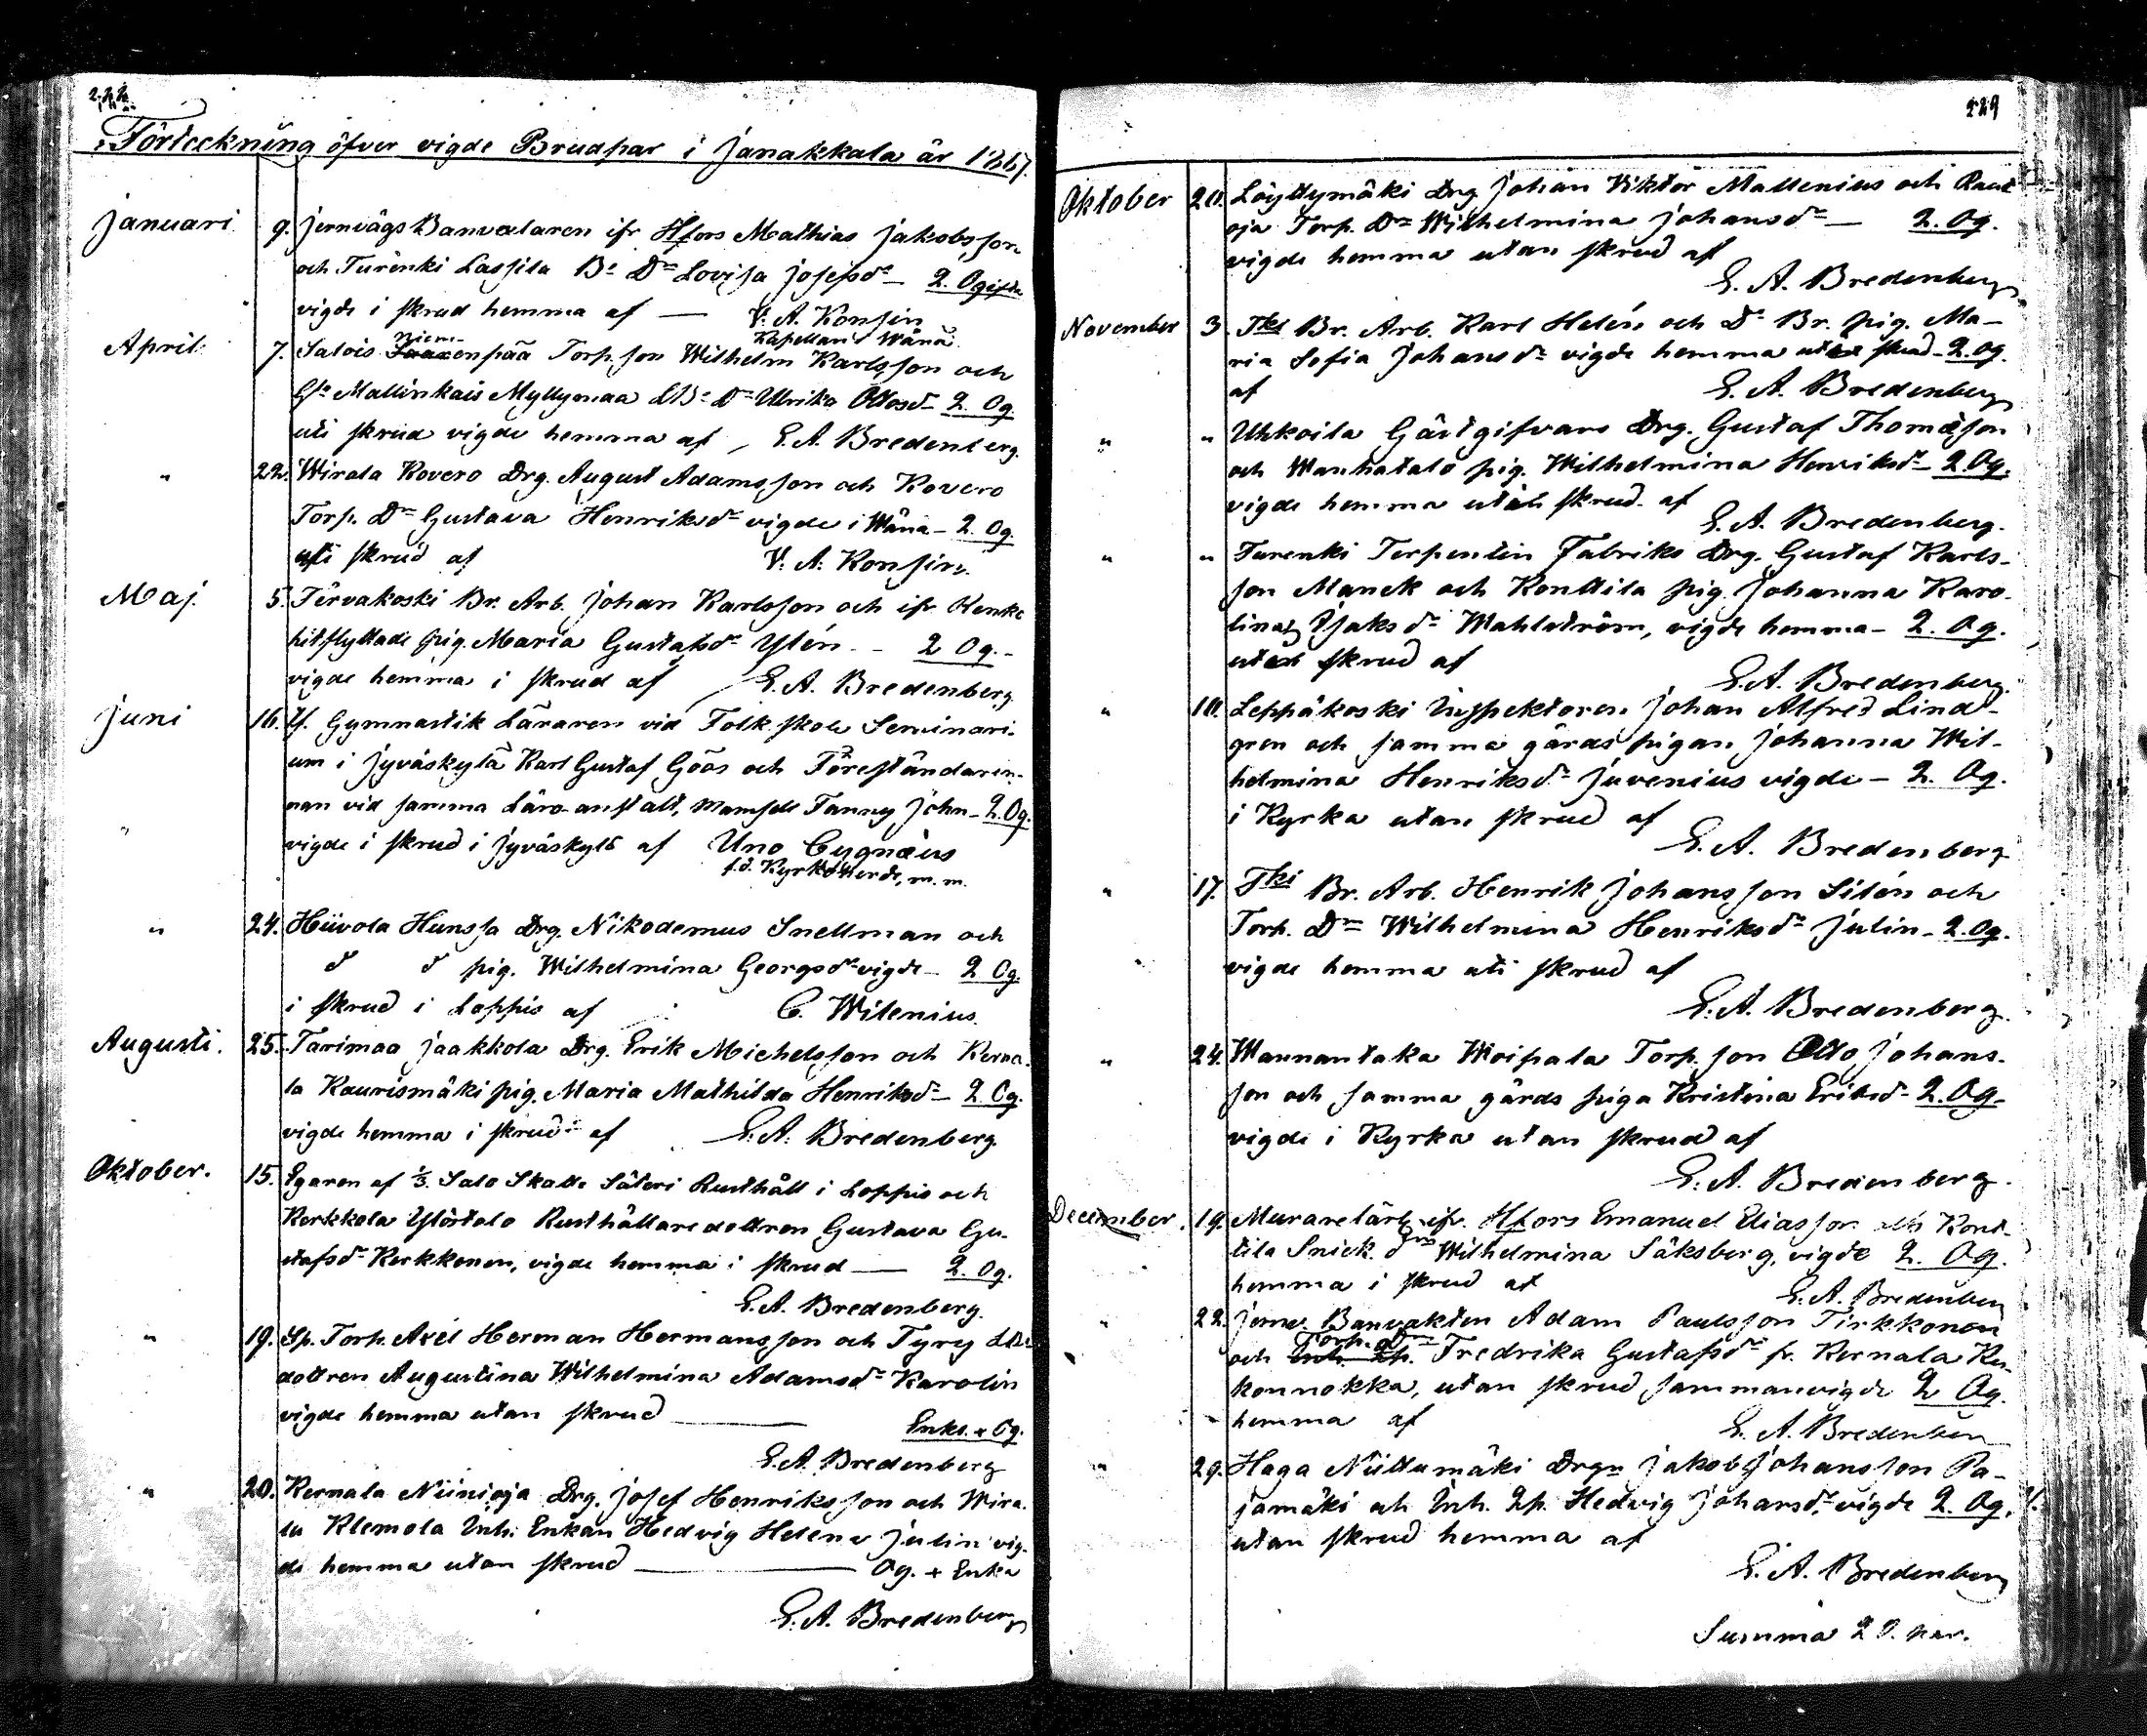 Förteckning öfver vigde Brudpar i Janakkala år 1867.
Januari 9. Jernvägs Banvaktaren ifr. Hfors Mathias Jakobsson
och Turenki Lassila Bde Dr Lovisa Josefsdr 2. Ogifte
vigde i skrud hemma af — V. A. Konsin
Kapellan i Wånå
April 7. Salois Niemenpää Torp. son Wilhelm Karlsson och
Mallinkais Myllymaa Dr Ulrika Ottosdr 2. Og.
uti skrud vigde hemma af E. A. Bredenberg.
" 22. Wirala Rovero Drg. August Adamsson och Rovero
Torp. Dr Gustava Henriksdr vigde i Wånå – 2. Og.
uti skrud af V. A. Konsin.
Maj. 5. Tervakoski Br. Arb. Johan Karlsson och ifr. Renko
hitflyttade pig. Maria Gustafsdr Ylén – 2 Og. –
vigde hemma i skrud af E. A. Bredenberg.
Juni 16. Gymnastik Läraren vid Folkskole Seminari-
um i Jyväskylä Karl Gustaf Göös och Föreståndarin-
nan vid samma Läroanstalt, Mamsell Fanny John – 2. Og.
vigde i skrud i Jyväskylä af Uno Cygnæus
f.d. Kyrkoherde, m. m.
" 24. Hiivola Hunsa Drg. Nikodemus Snellman och
d d pig. Wilhelmina Georgsdr vigde – 2 Og.
i skrud i Loppis af C. Witenius.
Augusti. 25. Tarimaa Jaakkola Drg. Erik Michelsson och Kerna-
la Kaurismäki pig. Maria Mathilda Henriksdr – 2 Og.
vigde hemma i skrud af E. A. Bredenberg
Oktober. 15. Egaren af ⅓ Salo Skatte Säteri Rusthåll i Loppis och
Kerkkola Ylöstalo Rusthållaredottren Gustava Gu-
stafsdr Kerkkonen, vigde hemma i skrud — 2. Og.
E. A. Bredenberg.
" 19. Sp. Torp. Axel Herman Hermansson och Tyry
dottren Augustina Wilhelmina Adamsdr Karolin
vigde hemma utan skrud — Enkl. + Og.
E. A. Bredenberg
" 20. Kernala Niinioja Drg. Josef Henriksson och Wira-
la Klemola Inh. Enkan Hedvig Helena Julin vig-
de hemma utan skrud — Og. + Enka
E. A. Bredenberg
229
Oktober 20. Löyttymäki Drg Johan Viktor Mallenius och Raut-
oja Torp. Dr Wilhelmina Johansdr — 2. Og.
vigde hemma utan skrud af
E. A. Bredenberg
November 3. Tki Br. Arb. Karl Helén och Dr Br. pig. Ma-
ria Sofia Johansdr vigde hemma utan skrud – 2. Og.
af E. A. Bredenberg
" " Uhkoila Gästgifvars Drg. Gustaf Thomasson
och Wanhatalo pig. Wilhelmina Henriksdr – 2 Og.
vigde hemma utan skrud af
E. A. Bredenberg.
" " Turenki Terpentin Fabriks Drg. Gustaf Karls-
son Manck och Konttila pig. Johanna Karo-
lina Isaksdr Wahlström, vigde hemma – 2. Og.
utan skrud af
E. A. Bredenberg.
" 10. Leppäkoski Inspektoren Johan Alfred Lind-
gren och samma gårds pigan Johanna Wil-
helmina Henriksdr Juvenius vigde – 2. Og.
i Kyrka utan skrud af
E. A. Bredenberg
" 17. Tki Br. Arb. Henrik Johansson Silén och
Torp. Dr Wilhelmina Henriksdr Julin – 2. Og.
vigde hemma uti skrud af
E. A. Bredenberg.
" 24. Wannantaka Woipala Torp. son Otto Johans-
son och samma gårds piga Kristina Eriksdr – 2. Og –
vigde i Kyrka utan skrud af
E. A. Bredenberg.
December. 19. Murarelärl. ifr. Hfors Emanuel Eliasson och Kont-
tila Snick. drn Wilhelmina Säksberg, vigde 2. Og.
hemma i skrud af
E. A. Bredenberg
" 22. Jernv. Banvakten Adam Paulsson Tirkkonen
och Torp. drn Fredrika Gustafsdr fr. Kernala Ku-
konnokka, utan skrud sammanvigde 2 Og.
hemma af E. A. Bredenberg
" 29. Haga Niittumäki Drgn Jakob Johansson Pa-
jamäki och Inh. Hedvig Johansdr vigde 2. Og.
utan skrud hemma af
E. A. Bredenberg
Summa 20. par.